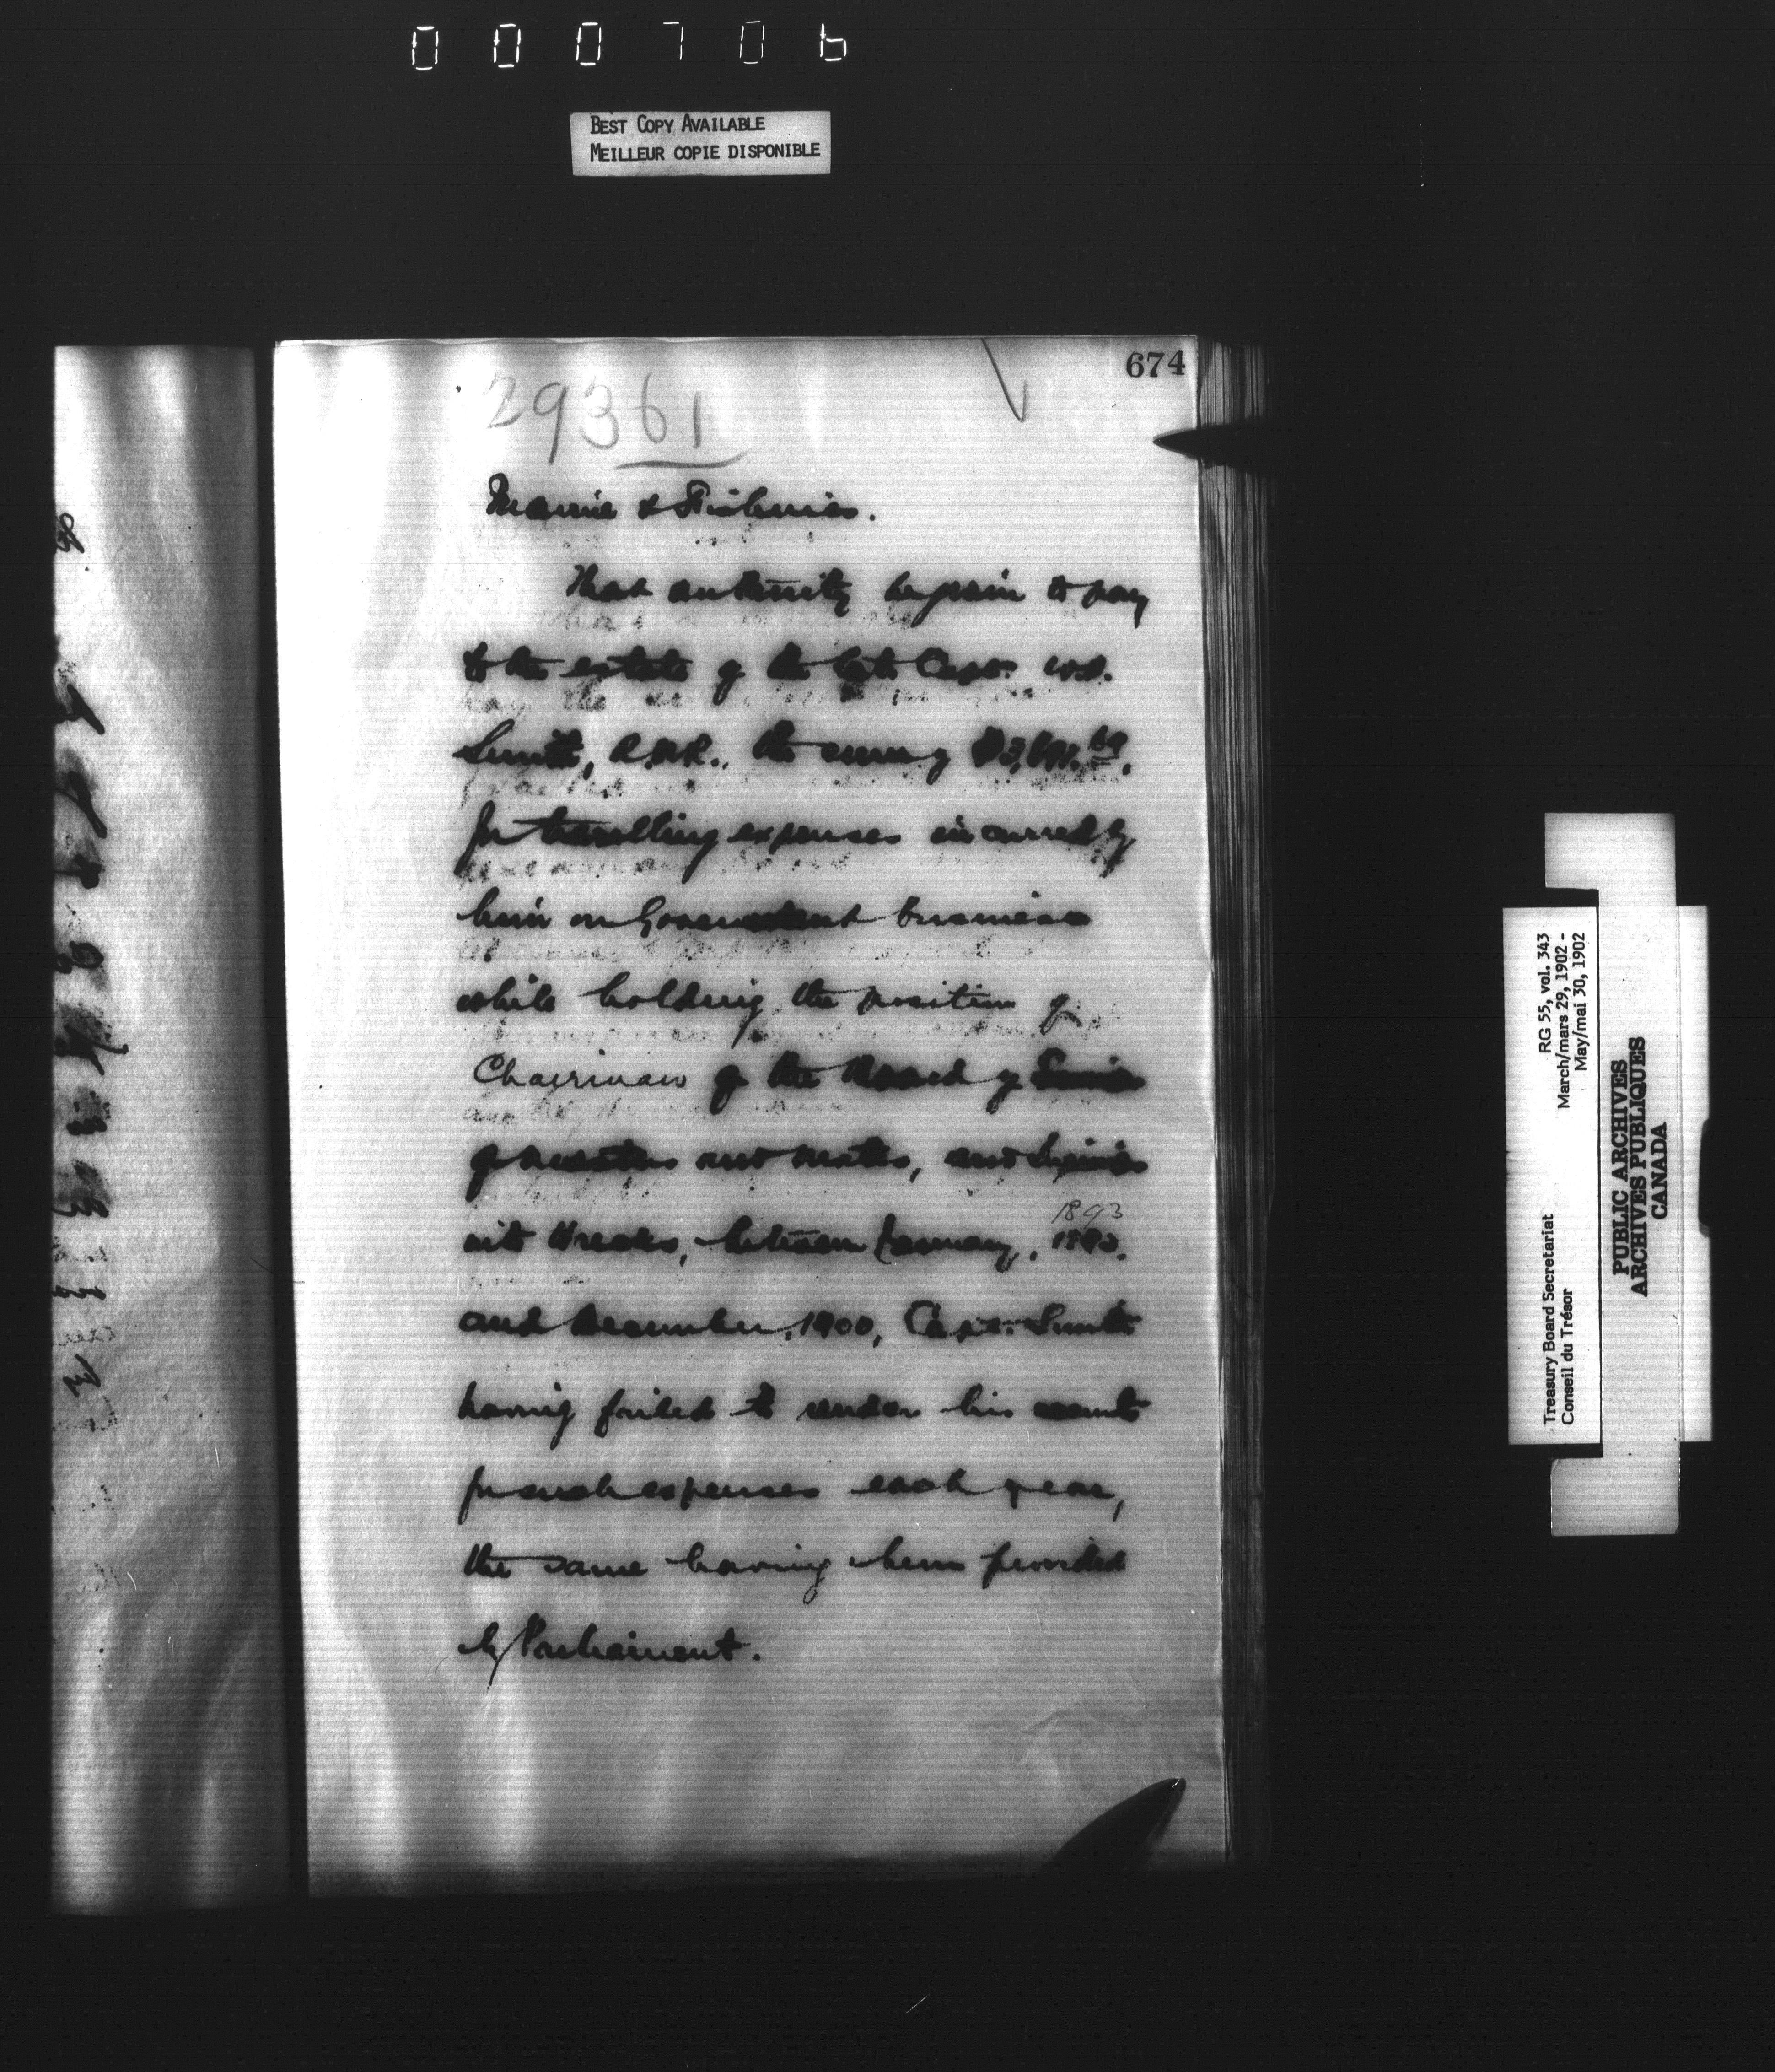 000706
BEST COPY AVAILABLE
MEILLEUR COPIE DISPONIBLE
674
29361
Marine & Fisheries.
That authority be given to pay
to the estate of the late Capt. W.H.
Smith, R.N.R., the sum of
for travelling expenses incurred by
him on Government business
while holding the position of
Chairman of the Board of Exam
of Masters and Mates, and Enquiries
into Wrecks, between January, 1893
and December, 1900, Capt. Smith
having failed to render his accounts
for such expenses each year,
the same having been provided
by Parliament.
RG 55, vol. 343
March/mars 29, 1902 -
May/mai 30, 1902
Treasury Board Secretariat
Conseil du Trésor
PUBLIC ARCHIVES
ARCHIVES PUBLIQUES
CANADA